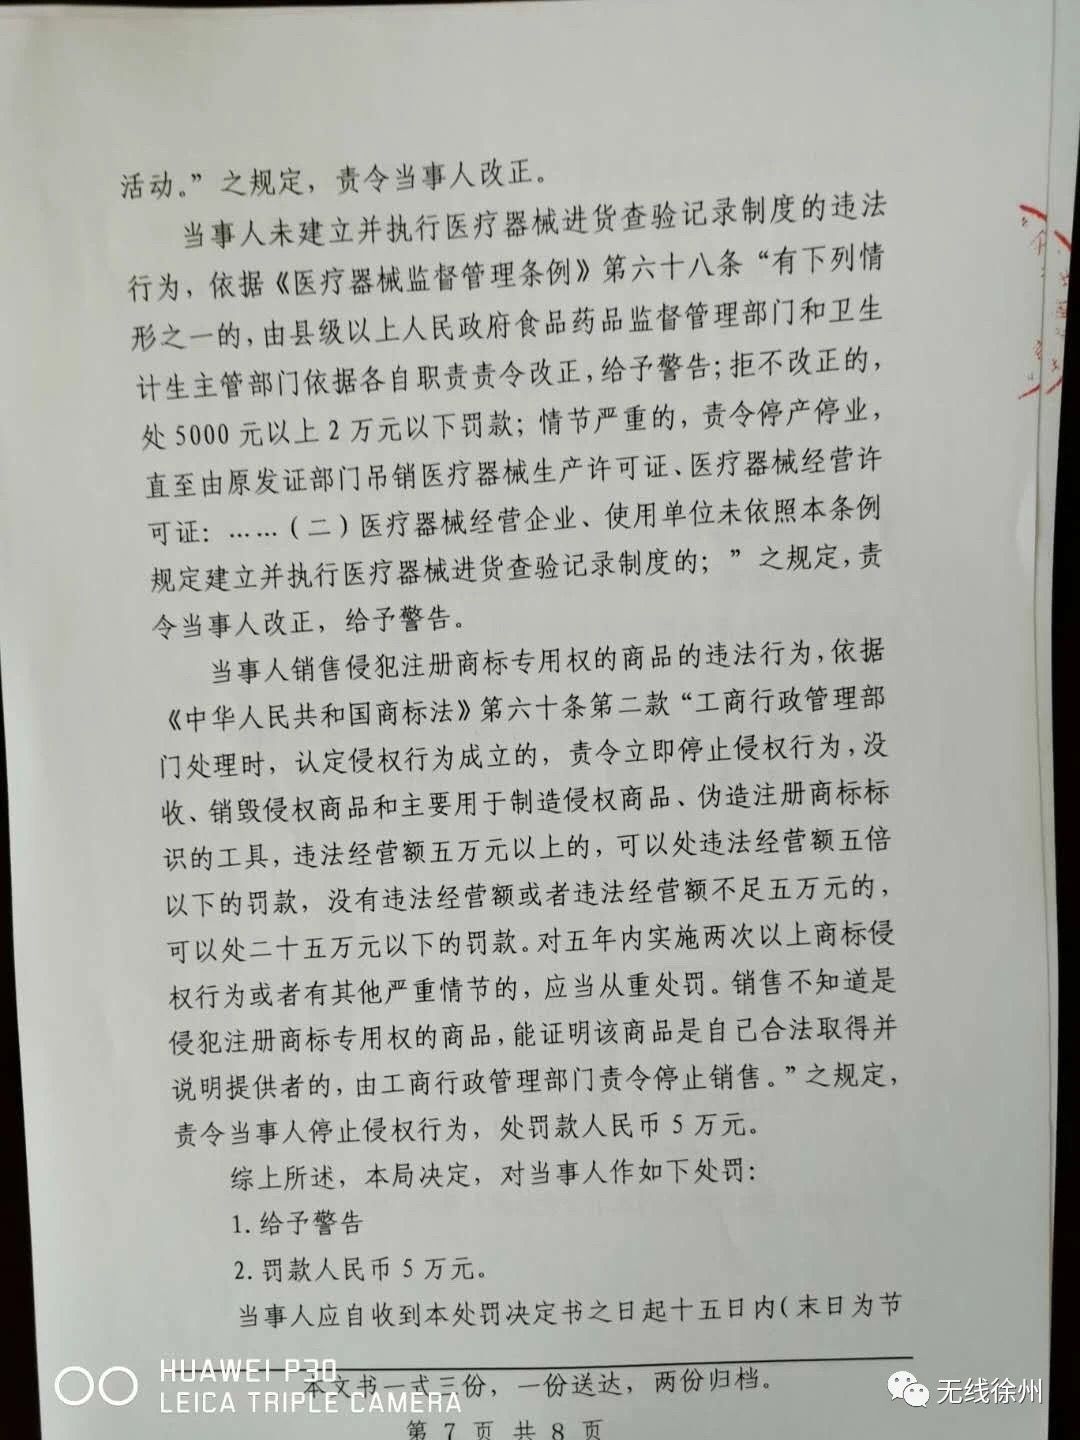 活动。”之规定，责令当事人改正。
当事人未建立并执行医疗器械进货查验记录制度的违法
行为，依据《医疗器械监督管理条例》第六十八条“有下列情
形之一的，由县级以上人民政府食品药品监督管理部门和卫生
计生主管部门依据各自职责责令改正，给予警告；拒不改正的，
处 5000 元以上 2 万元以下罚款；情节严重的，责令停产停业，
直至由原发证部门吊销医疗器械生产许可证、医疗器械经营许
可证：……（二）医疗器械经营企业、使用单位未依照本条例
规定建立并执行医疗器械进货查验记录制度的；”之规定，责
令当事人改正，给予警告。
当事人销售侵犯注册商标专用权的商品的违法行为，依据
《中华人民共和国商标法》第六十条第二款“工商行政管理部
门处理时，认定侵权行为成立的，责令立即停止侵权行为，没
收、销毁侵权商品和主要用于制造侵权商品、伪造注册商标标
识的工具，违法经营额五万元以上的，可以处违法经营额五倍
以下的罚款，没有违法经营额或者违法经营额不足五万元的，
可以处二十五万元以下的罚款。对五年内实施两次以上商标侵
权行为或者有其他严重情节的，应当从重处罚。销售不知道是
侵犯注册商标专用权的商品，能证明该商品是自己合法取得并
说明提供者的，由工商行政管理部门责令停止销售。”之规定，
责令当事人停止侵权行为，处罚款人民币 5 万元。
综上所述，本局决定，对当事人作如下处罚：
1. 给予警告
2. 罚款人民币 5 万元。
当事人应自收到本处罚决定书之日起十五日内（末日为节
本文书一式三份，一份送达，两份归档。
第 7 页 共 8 页
HUAWEI P30
LEICA TRIPLE CAMERA
无线徐州